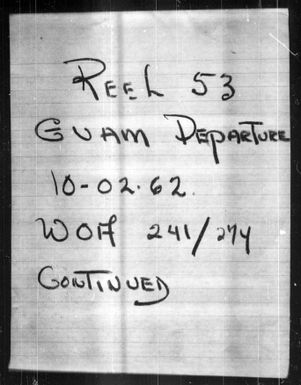 REEL 53
GUAM DEPARTURE
10-02-62.
WOA 241/274
CONTINUED